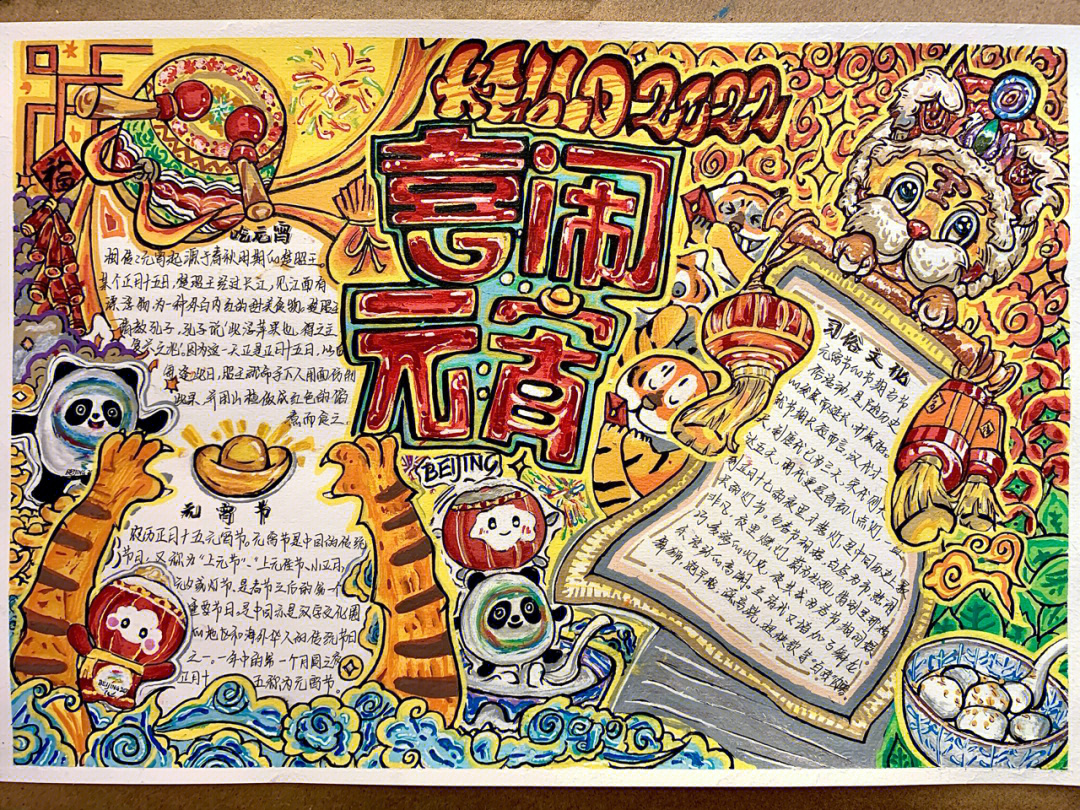 HELLO 2022
喜闹
元宵
福
吃元宵
相传元宵起源于春秋周期的楚昭王。
某个正月十五日,楚昭王经过长江,见江面有
漂浮物为一种外白内红的甜美食物。楚昭王
请教孔子,孔子说"此浮苹果也,得之主
复兴之兆。因为这一天正是正月十五日,以后
每逢此日,昭王就命手下人用面仿制
此果,并用山楂做成红色的馅
煮而食之。
元宵节
农历正月十五元宵节。元宵节是中国的传统
节日,又称为"上元节"、"上元佳节、小正月、
元夕或灯节,是春节之后的第一个
重要节日,是中国亦是汉字文化圈
的地区和海外华人的传统节日
之一。一年中的第一个月圆之夜
正月十 五称为元宵节。
BEIJING
习俗文化
元宵节的节期与节
俗活动,是随历史
的发展而延长,扩展的。
就节期长短而言,汉代才一
天,到唐代已为三天,宋代则长
达五天,明代更是自初八点灯,一直
到正月十七的夜里才落灯,是中国历史上最
长的灯节。与春节相接,白昼为市,热闹
非凡,夜里燃灯,蔚为壮观。特别是那精
巧,多彩的灯火,使其成为春节期间娱
乐活动的高潮。至清代,又增加了舞龙、
舞狮、跑旱船、踩高跷、扭秧歌等